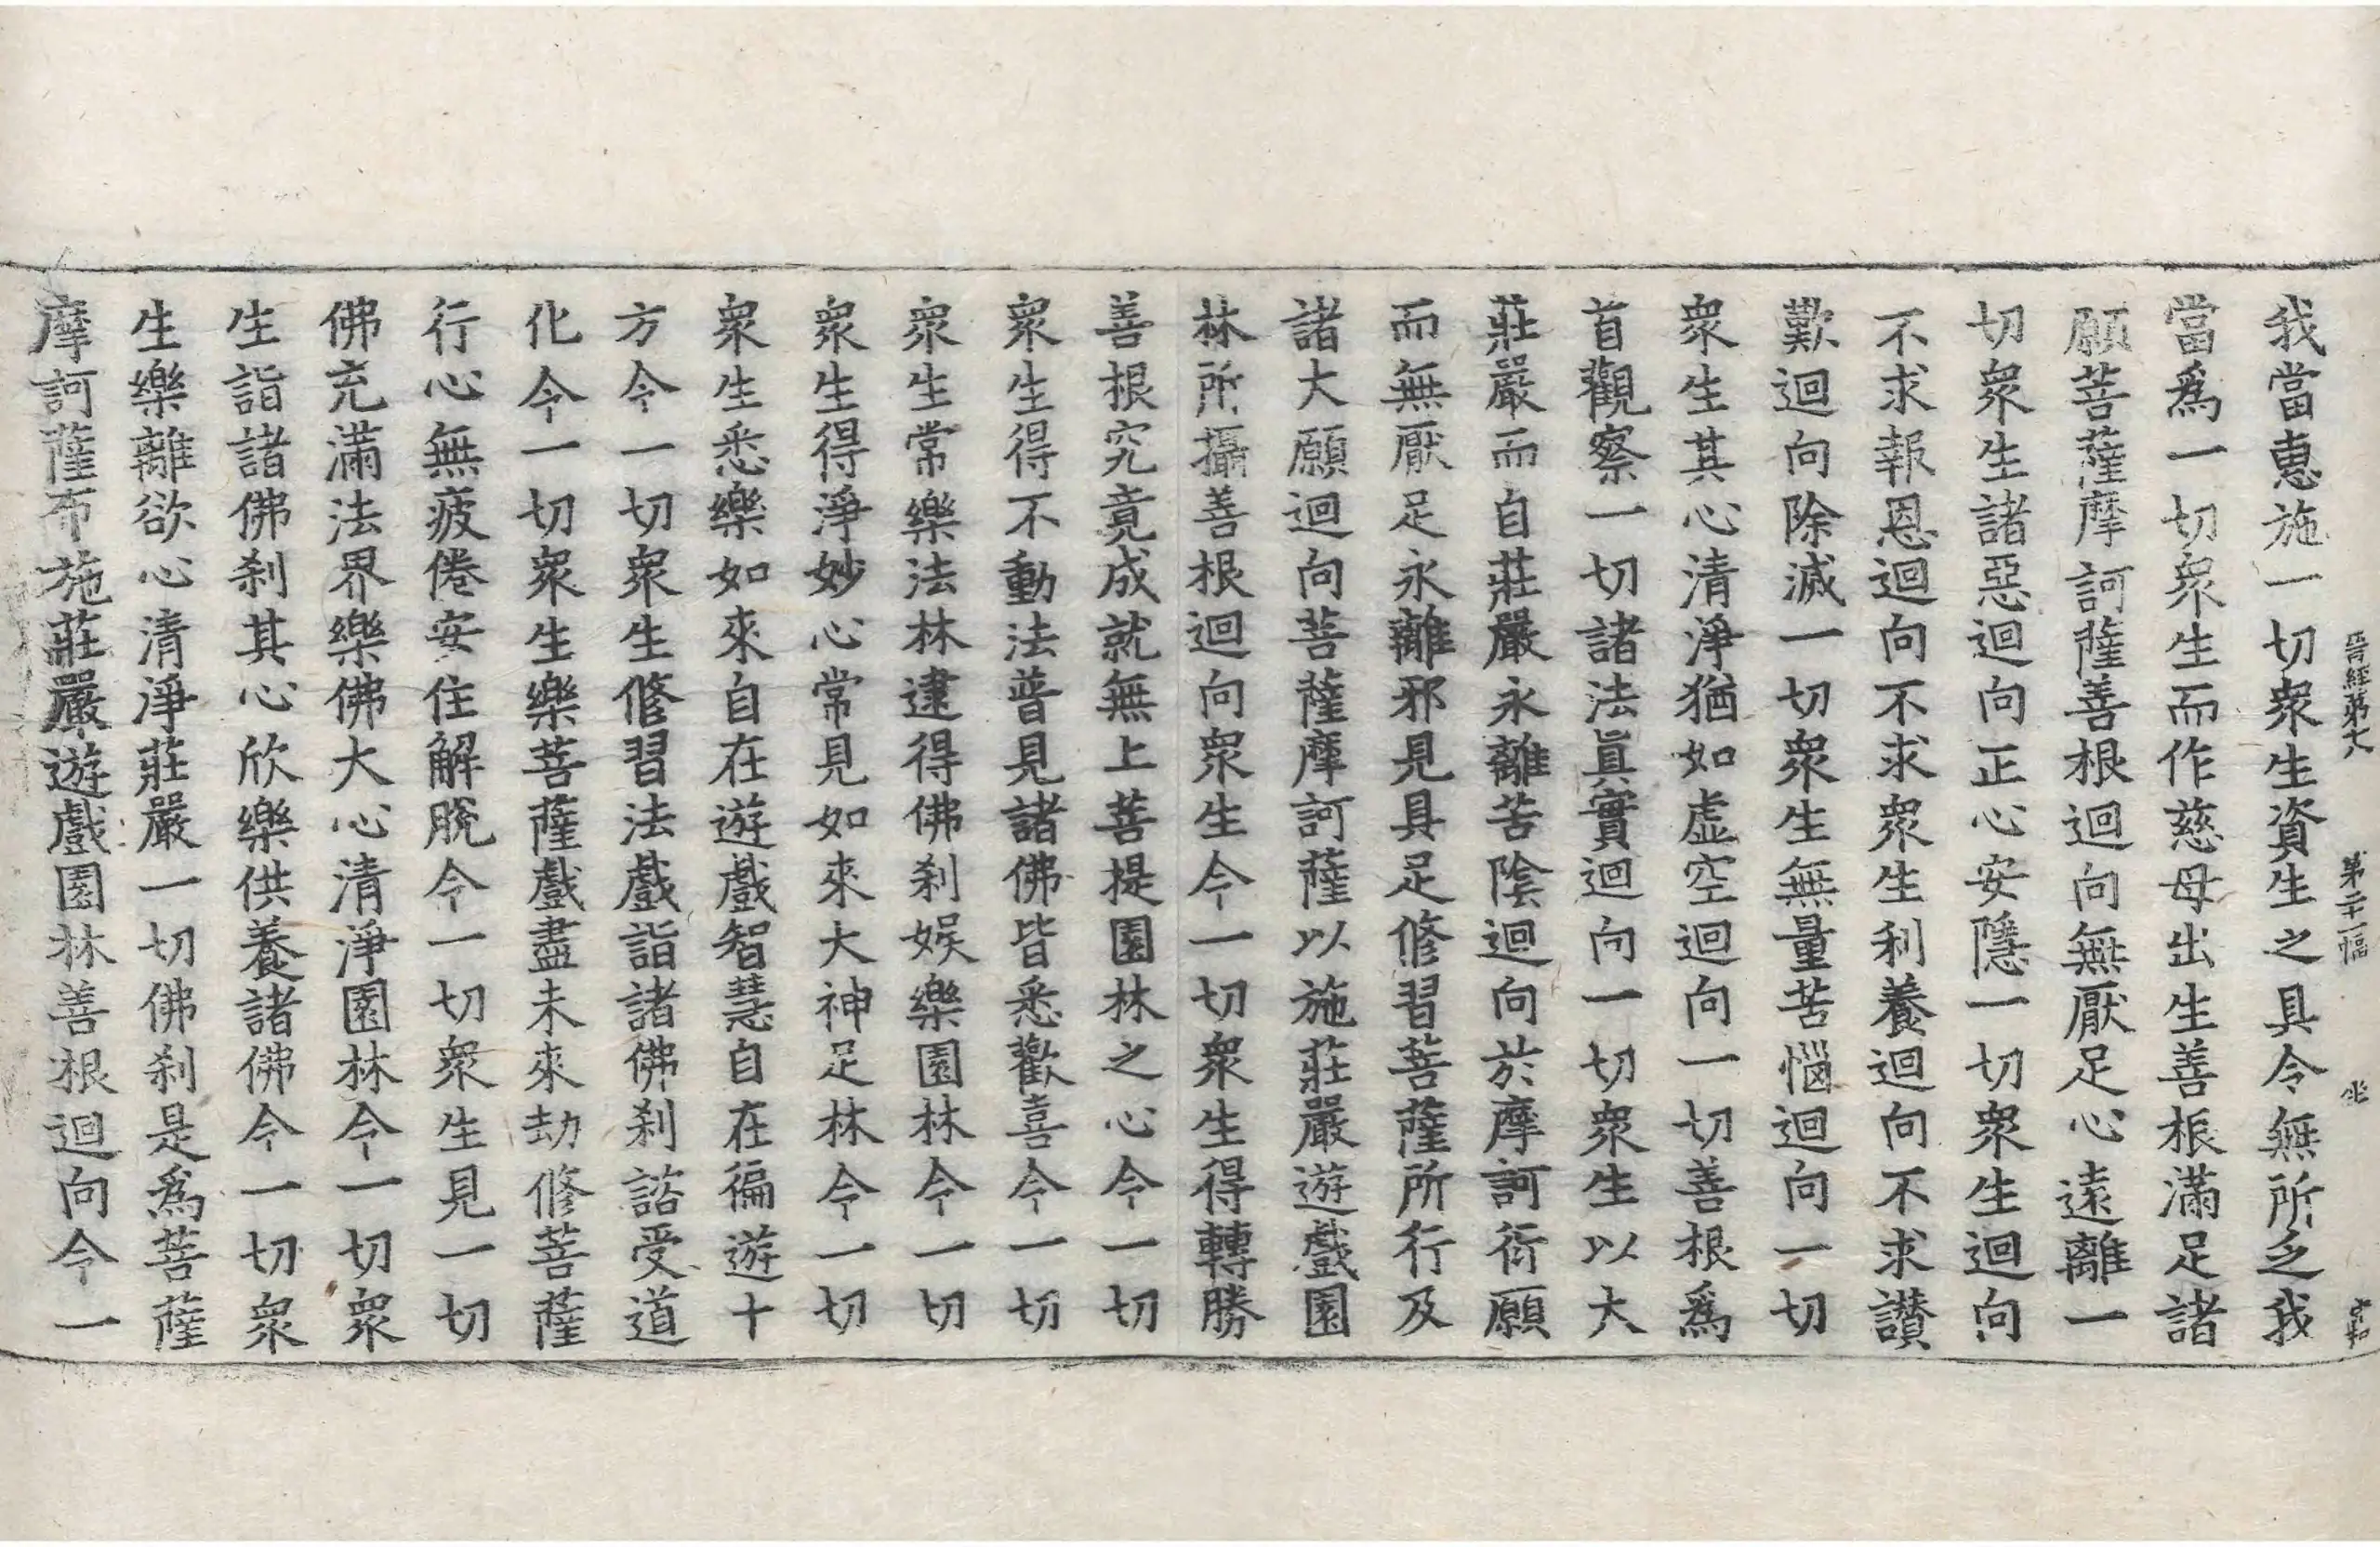 晉經第七　第二十一幅　坐
我當惠施一切衆生資生之具令無所乏我
當爲一切衆生而作慈母出生善根滿足諸
願菩薩摩訶薩善根迴向無厭足心遠離一
切衆生諸惡迴向正心安隱一切衆生迴向
不求報恩迴向不求衆生利養迴向不求讃
歎迴向除滅一切衆生無量苦惱迴向一切
衆生其心清淨猶如虚空迴向一切善根爲
首觀察一切諸法眞實迴向一切衆生以大
莊嚴而自莊嚴永離苦陰迴向於摩訶衍願
而無厭足永離邪見具足修習菩薩所行及
諸大願迴向菩薩摩訶薩以施莊嚴遊戲園
林所攝善根迴向衆生令一切衆生得轉勝
善根究竟成就無上菩提園林之心令一切
衆生得不動法普見諸佛皆悉歡喜令一切
衆生常樂法林逮得佛刹娛樂園林令一切
衆生得淨妙心常見如來大神足林令一切
衆生悉樂如來自在遊戲智慧自在徧遊十
方令一切衆生修習法戲詣諸佛刹諮受道
化令一切衆生樂菩薩戲盡未來劫修菩薩
行心無疲倦安住解脫令一切衆生見一切
佛充滿法界樂佛大心清淨園林令一切衆
生詣諸佛刹其心欣樂供養諸佛令一切衆
生樂離欲心清淨莊嚴一切佛刹是爲菩薩
摩訶薩布施莊嚴遊戲園林善根迴向令一